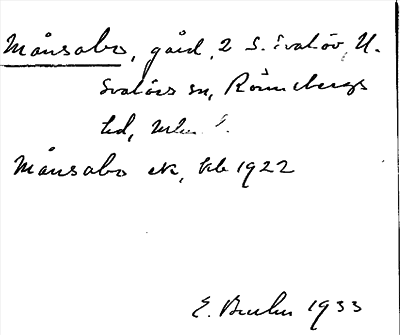 Månsabo, gård, 2 S. Svalöv, N.
Svalövs sn, Rönnebergs
hd,
Månsabo ek, kb 1922
E. 1933